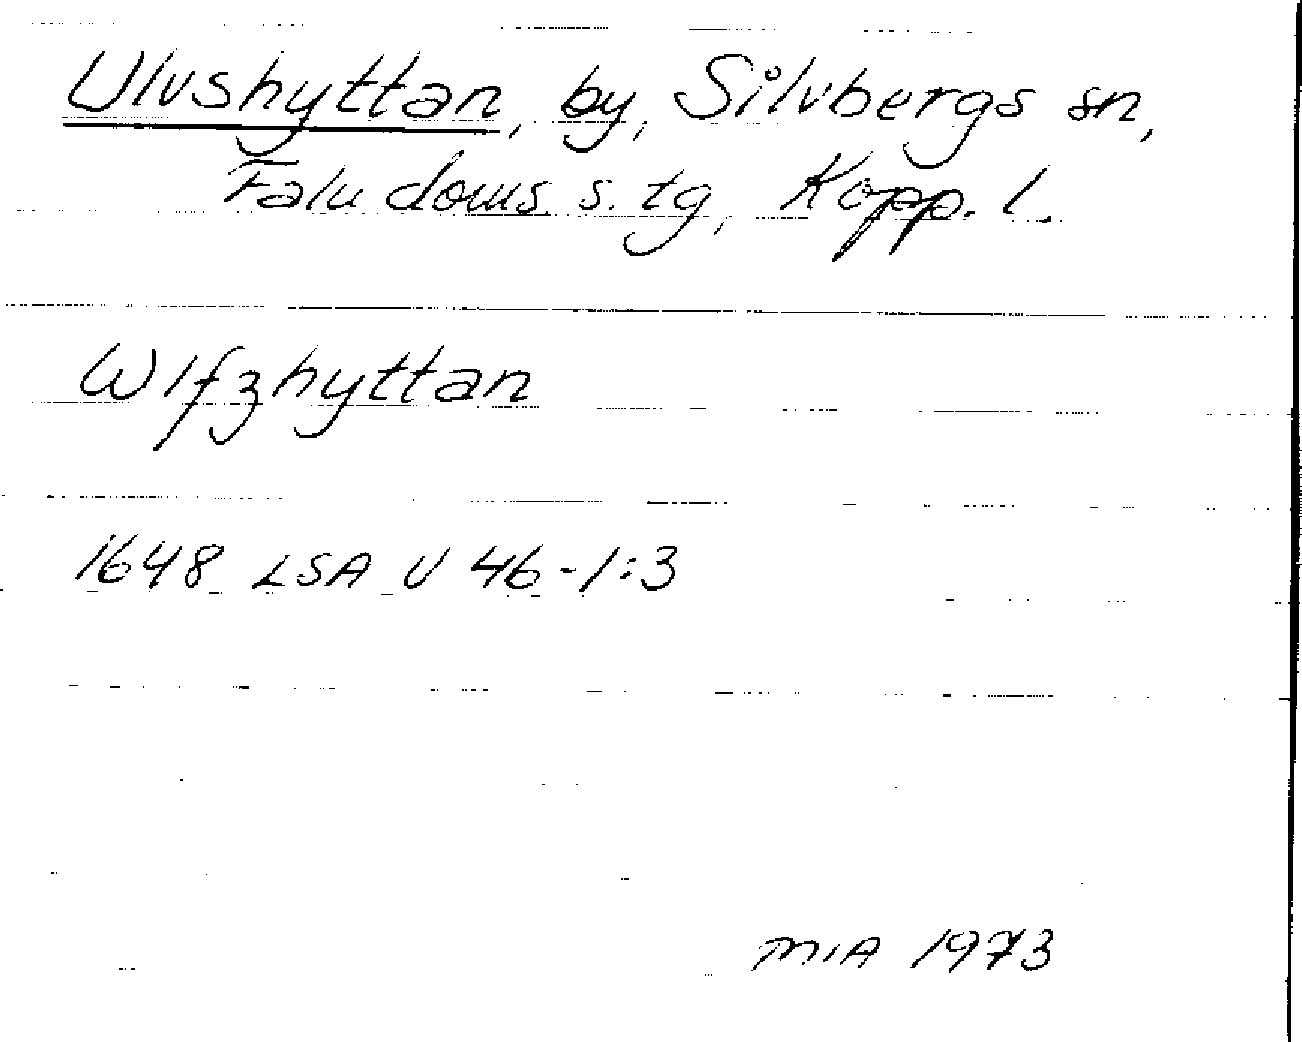 Ulvshyttan, by, Silvbergs sn,
Falu doms. s. tg, Kopp. l.
Wlfzhyttan
1648 LSA U 46-1:3
MIA 1973